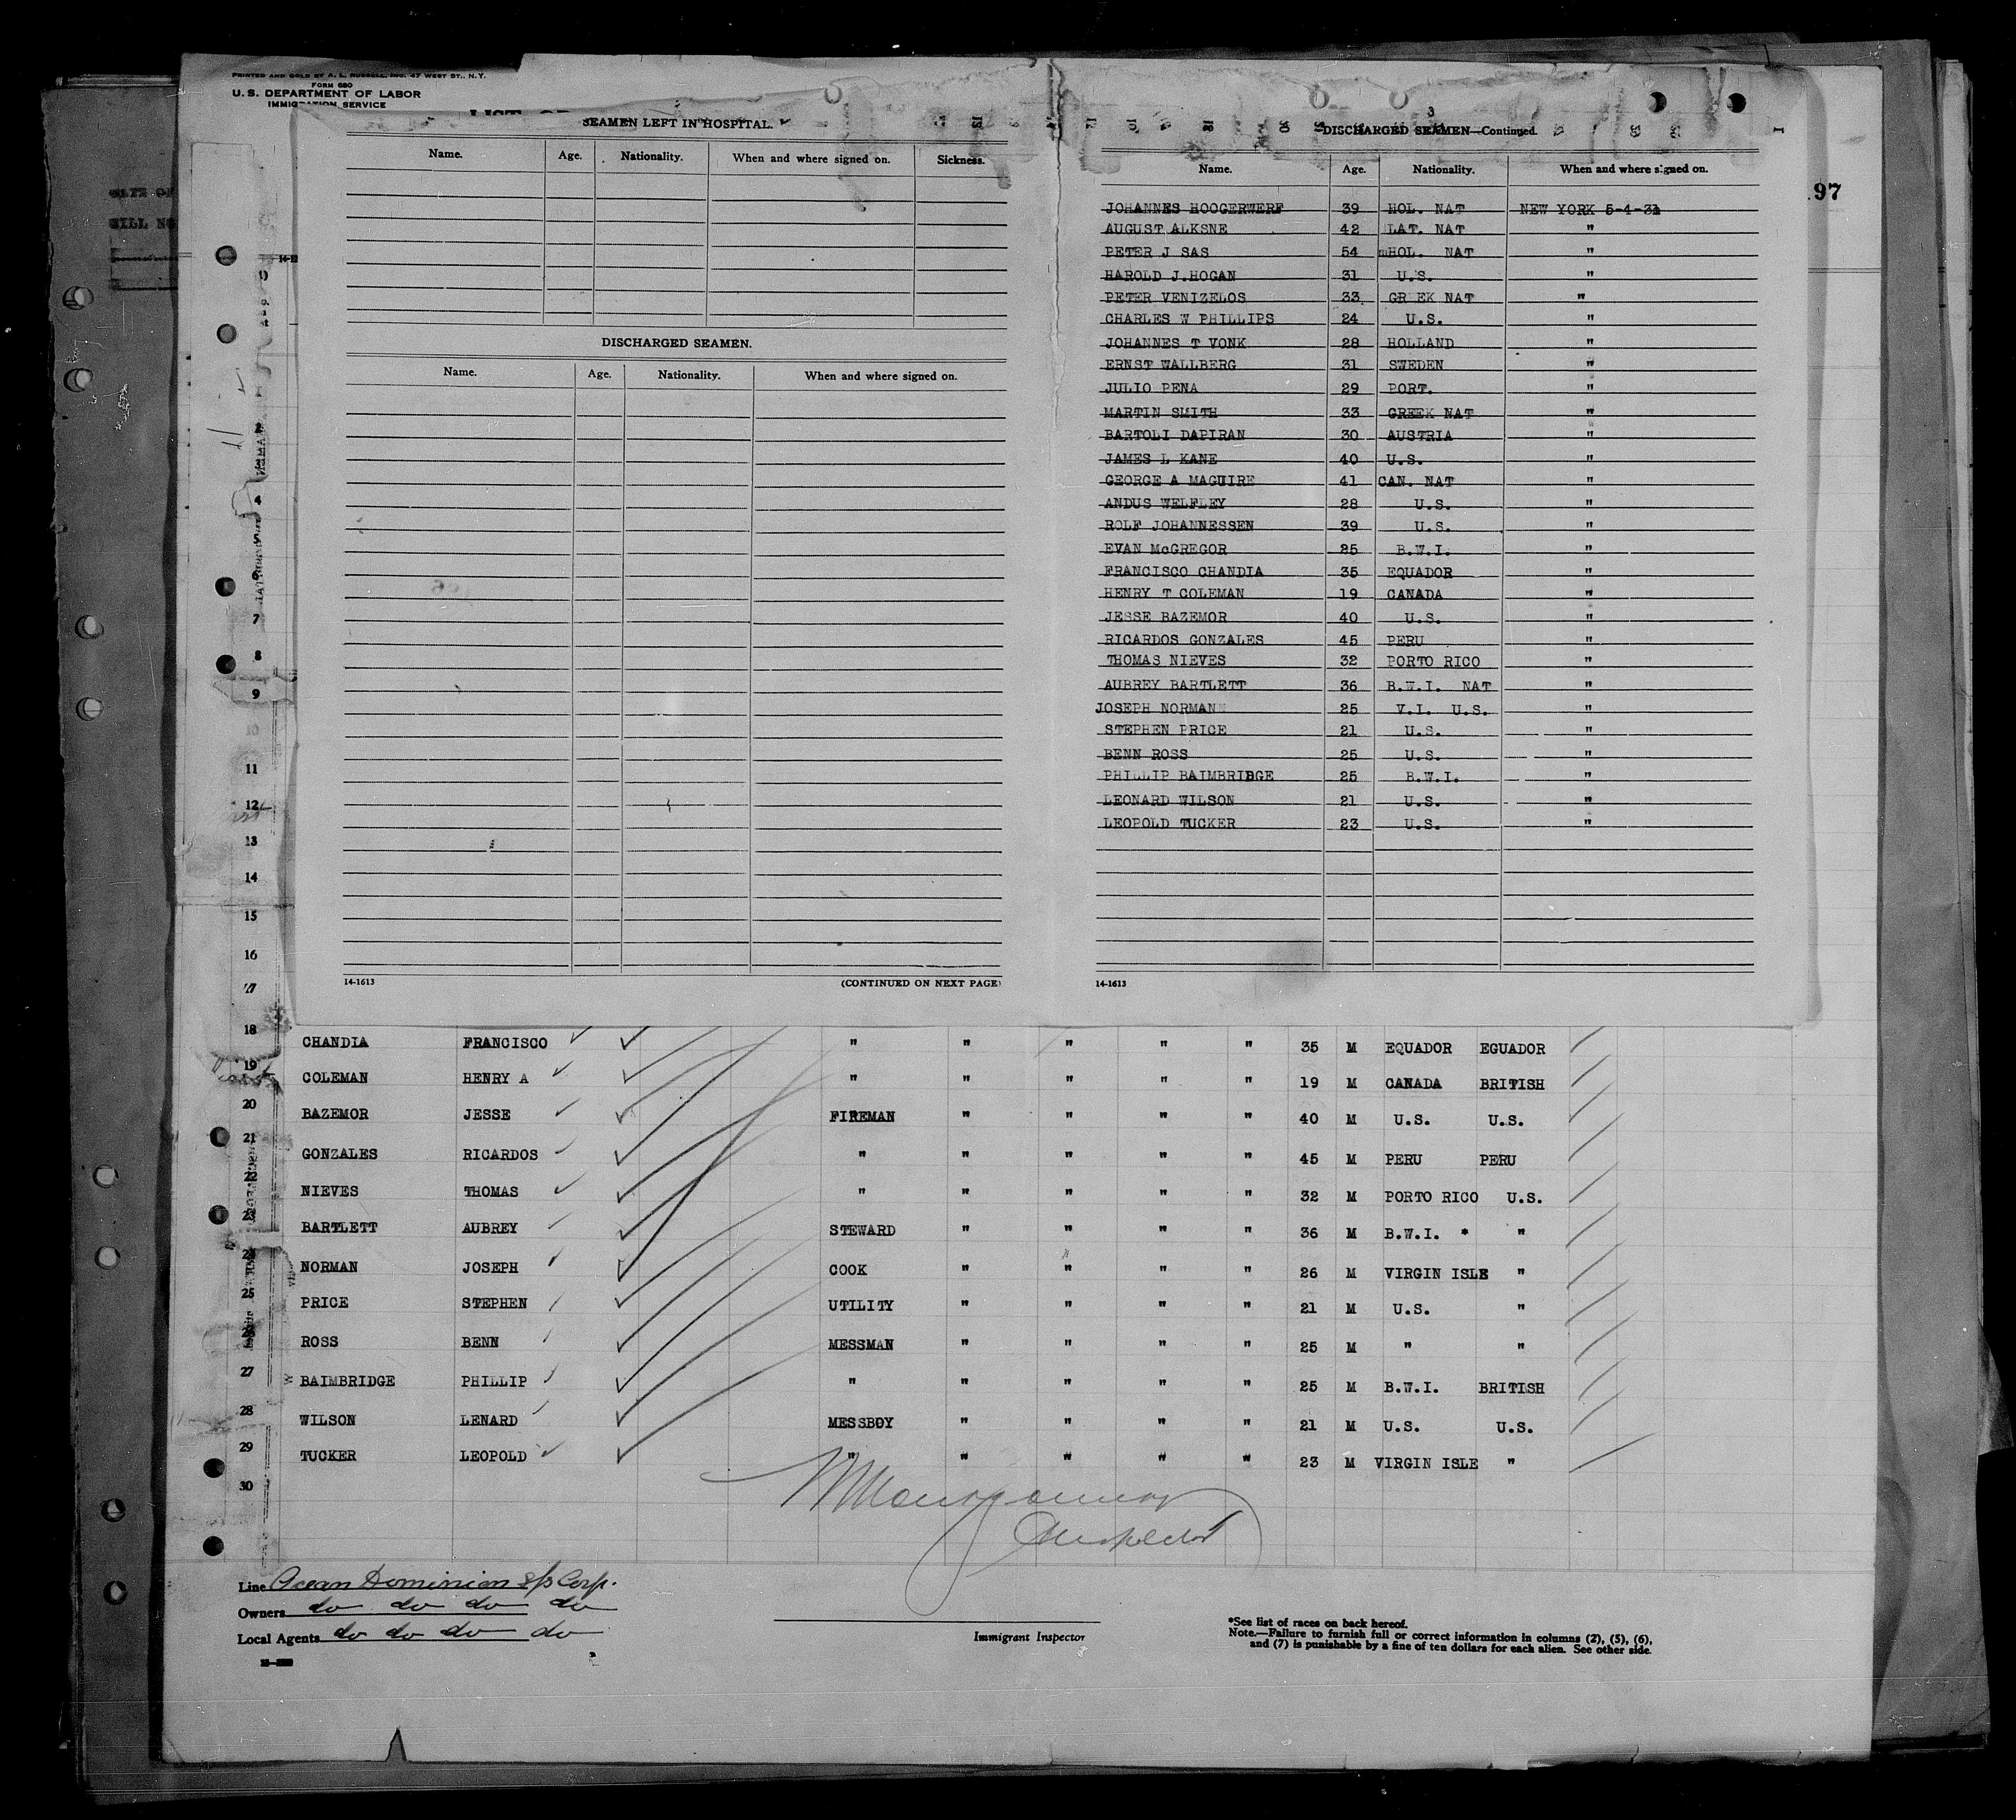 PRINTED AND SOLD BY A. L. RUSSELL, INC. 47 WEST ST., N.Y.
FORM 680
U. S. DEPARTMENT OF LABOR
IMMIGRATION SERVICE
SEAMEN LEFT IN HOSPITAL.
Name. Age. Nationality. When and where signed on. Sickness.
DISCHARGED SEAMEN.
Name. Age. Nationality. When and where signed on.
14-1613 (CONTINUED ON NEXT PAGE)
3
DISCHARGED SEAMEN—Continued.
Name. Age. Nationality. When and where signed on.
97
JOHANNES HOOGERWERF 39 HOL. NAT NEW YORK 5-4-31
AUGUST ALKSNE 42 LAT. NAT "
PETER J SAS 54 HOL. NAT "
HAROLD J.HOGAN 31 U.S. "
PETER VENIZELOS 33 GR EK NAT "
CHARLES W PHILLIPS 24 U.S. "
JOHANNES T VONK 28 HOLLAND "
ERNST WALLBERG 31 SWEDEN "
JULIO PENA 29 PORT. "
MARTIN SMITH 33 GREEK NAT "
BARTOLI DAPIRAN 30 AUSTRIA "
JAMES L KANE 40 U.S. "
GEORGE A MAGUIRE 41 CAN. NAT "
ANDUS WELFLEY 28 U.S. "
ROLF JOHANNESSEN 39 U.S. "
EVAN McGREGOR 25 B.W.I. "
FRANCISCO CHANDIA 35 EQUADOR "
HENRY T COLEMAN 19 CANADA "
JESSE BAZEMOR 40 U.S. "
RICARDOS GONZALES 45 PERU "
THOMAS NIEVES 32 PORTO RICO "
AUBREY BARTLETT 36 B.W.I. NAT "
JOSEPH NORMANN 25 V.I. U.S. "
STEPHEN PRICE 21 U.S. "
BENN ROSS 25 U.S. "
PHILLIP BAIMBRIDGE 25 B.W.I. "
LEONARD WILSON 21 U.S. "
LEOPOLD TUCKER 23 U.S. "
14-1613
2
3
4
5
6
7
8
9
10
11
12
13
14
15
16
17
18 CHANDIA FRANCISCO " " " " " 35 M EQUADOR EGUADOR
19 COLEMAN HENRY A " " " " " 19 M CANADA BRITISH
20 BAZEMOR JESSE FIREMAN " " " " 40 M U.S. U.S.
21 GONZALES RICARDOS " " " " " 45 M PERU PERU
22 NIEVES THOMAS " " " " " 32 M PORTO RICO U.S.
23 BARTLETT AUBREY STEWARD " " " " 36 M B.W.I. * "
24 NORMAN JOSEPH COOK " " " " 26 M VIRGIN ISLE "
25 PRICE STEPHEN UTILITY " " " " 21 M U.S. "
26 ROSS BENN MESSMAN " " " " 25 M " "
27 BAIMBRIDGE PHILLIP " " " " " 25 M B.W.I. BRITISH
28 WILSON LENARD MESSBOY " " " " 21 M U.S. U.S.
29 TUCKER LEOPOLD " " " " " 23 M VIRGIN ISLE "
30
Inspector
Line Ocean Dominion S/S Corp.
Owners do do do do
Local Agents do do do do
Immigrant Inspector
*See list of races on back hereof.
Note.—Failure to furnish full or correct information in columns (2), (5), (6),
and (7) is punishable by a fine of ten dollars for each alien. See other side.